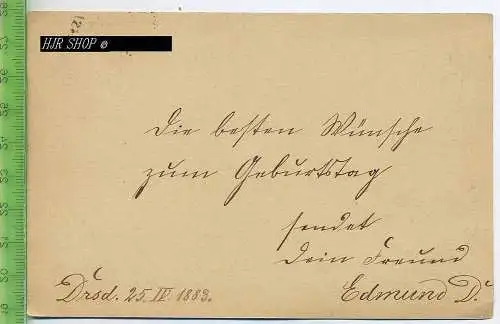 HJR SHOP ©
Die besten Wünsche
zum Geburtstag
sendet
Dein Freund
Edmund D.
Drsd. 25. IV 1883.